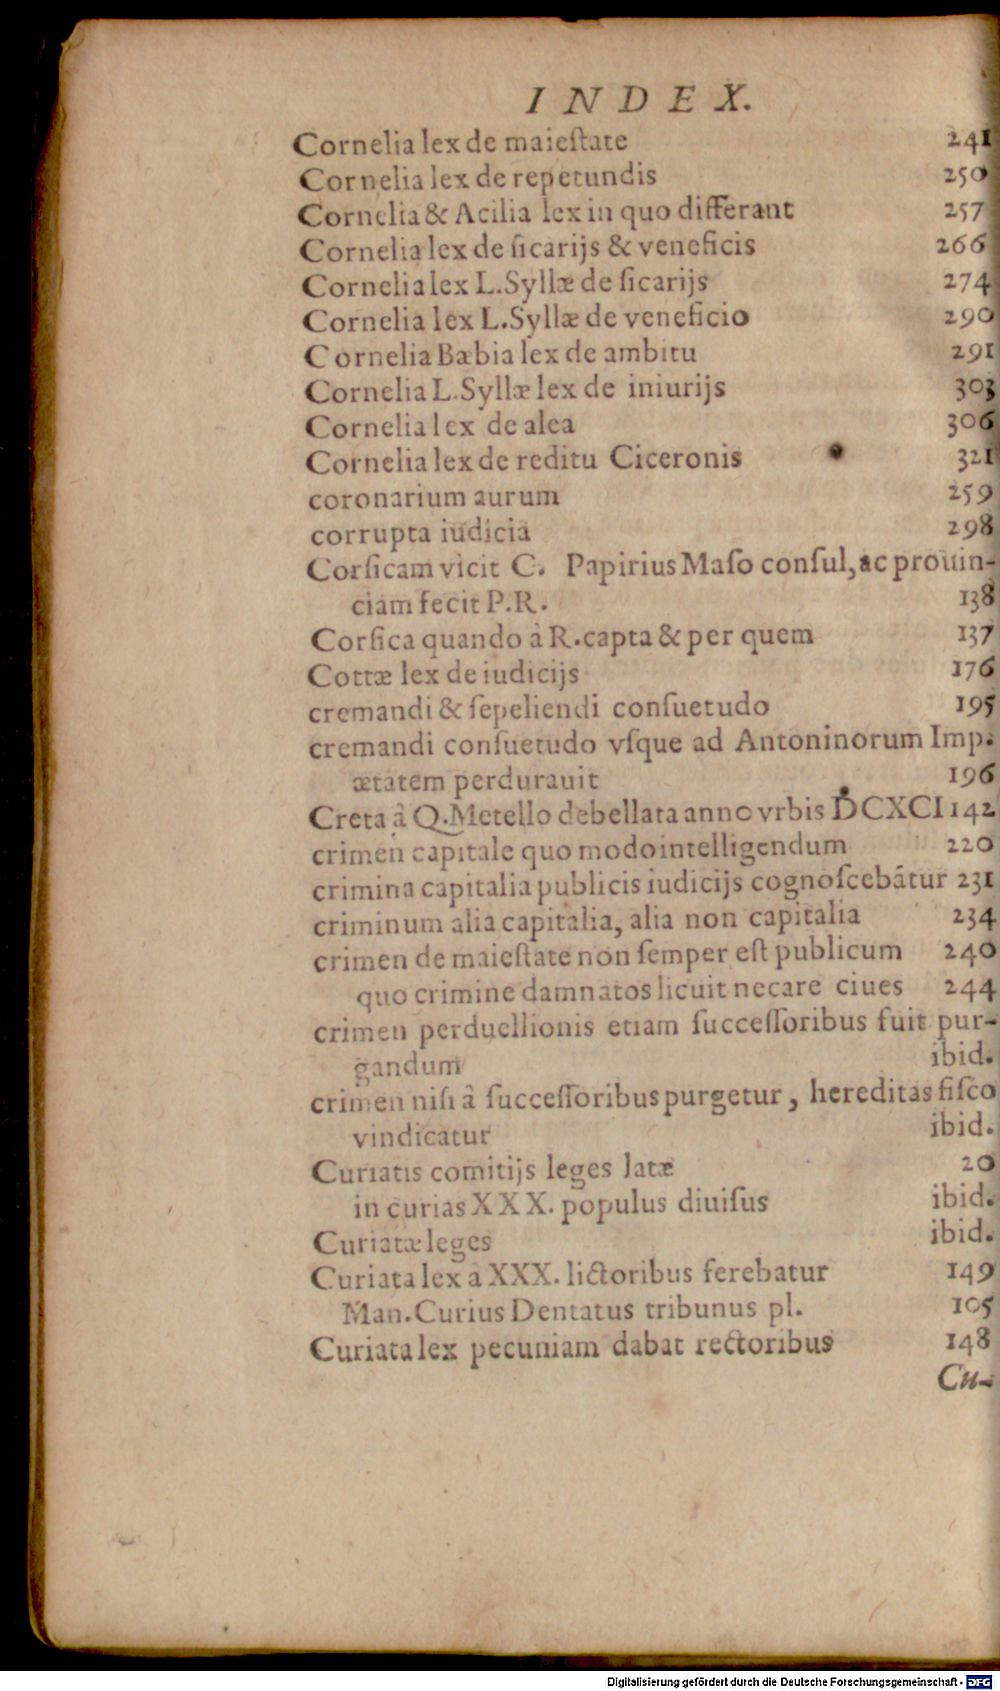 INDEX.
Cornelia lex de maieſtate 241
Cornelia lex de repetundis 250
Cornelia & Acilia lex in quo differant 257
Cornelia lex de ſicarijs & veneficis 266
Cornelia lex L. Syllæ de ſicarijs 274
Cornelia lex L. Syllæ de veneficio 290
Cornelia Bæbia lex de ambitu 291
Cornelia L. Syllæ lex de iniurijs 303
Cornelia lex de alea 306
Cornelia lex de reditu Ciceronis 321
coronarium aurum 259
corrupta iudicia 298
Corſicam vicit C. Papirius Maſo conſul, ac prouin-
ciam fecit P.R. 138
Corſica quando à R. capta & per quem 137
Cottæ lex de iudicijs 176
cremandi & ſepeliendi conſuetudo 195
cremandi conſuetudo vſque ad Antoninorum Imp.
ætatem perdurauit 196
Creta à Q. Metello debellata anno vrbis DCXCI 142
crimen capitale quo modo intelligendum 220
crimina capitalia publicis iudicijs cognoſcebātur 231
criminum alia capitalia, alia non capitalia 234
crimen de maieſtate non ſemper eſt publicum 240
quo crimine damnatos licuit necare ciues 244
crimen perduellionis etiam ſucceſſoribus fuit pur-
gandum ibid.
crimen niſi â ſucceſſoribus purgetur, hereditas fiſco
vindicatur ibid.
Curiatis comitijs leges latæ 20
in curias XXX. populus diuiſus ibid.
Curiatæ leges ibid.
Curiata lex a XXX. lictoribus ferebatur 149
Man. Curius Dentatus tribunus pl. 105
Curiata lex pecuniam dabat rectoribus 148
Cu-
Digitalisierung gefördert durch die Deutsche Forschungsgemeinschaft - DFG